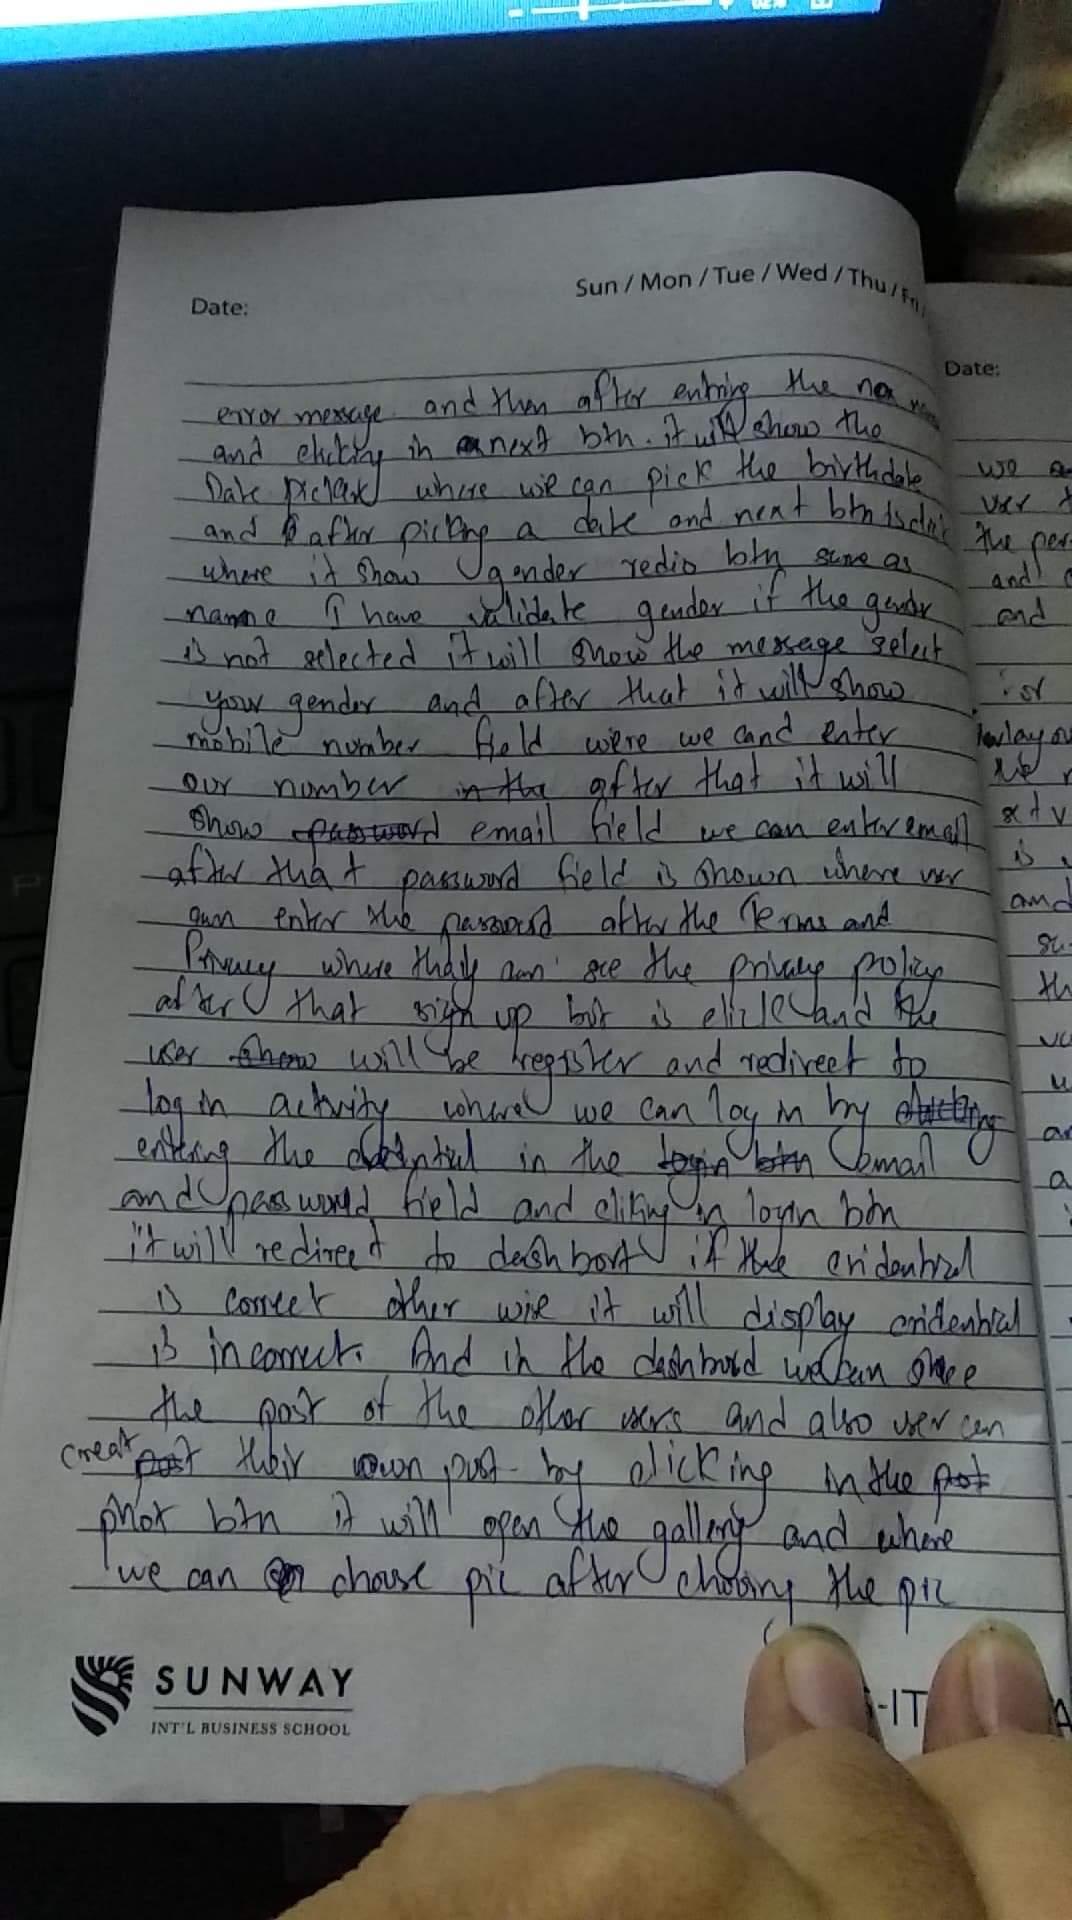 Date:
Sun / Mon / Tue / Wed / Thu / Fri
error message and then after entring the
and in next btn. it will show the
Date where we can pick the birthdate
and after picking a date and next btn is
where it show gender redio btn same as
name I have validate gender if the gender
is not selected it will show the message select
your gender and after that it will show
mobile number field were we cand enter
our number in the after that it will
show password email field we can enter email
after that password field is shown where user
enter the password after the Terms and
Privacy where they can see the privacy policy
after that sign up but is and the
user show will be register and redirect to
log in activity where we can log in by
entering the in the login btn email
and password field and in login btn
it will redirect to dashbort if the cridential
is correct other wise it will display cridential
is incorrect. And in the dashbord we can
the post of the other users and also user can
creat post their own post by clicking in the post
phot btn it will open the gallery and where
we can choose pic after choosing the pic
SUNWAY
INT'L BUSINESS SCHOOL
-IT
Date:
we
user
the
and
and
is
and